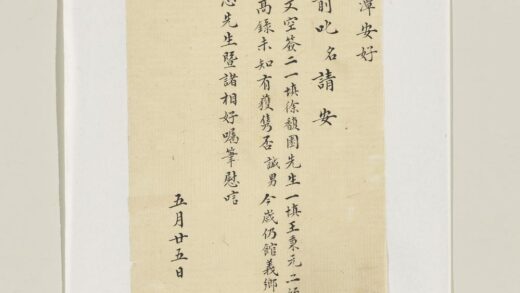 潭安好
前叱名請安
空簽二一填徐馥園先生一填王東元二
高錄未知有獲雋否誠男今歲仍館義鄉
先生暨諸相好囑筆慰唁
五月廿五日